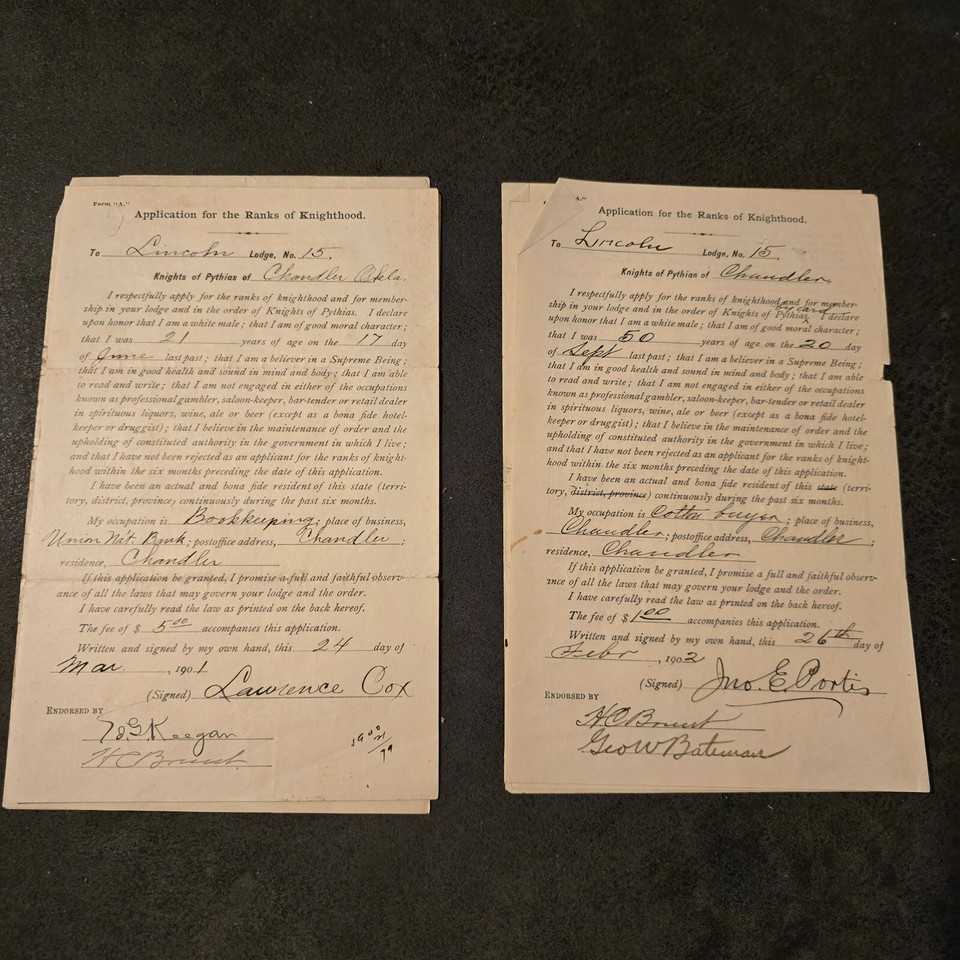 Form "A."
Application for the Ranks of Knighthood.
To Lincoln Lodge, No. 15.
Knights of Pythias of Chandler Okla.
I respectfully apply for the ranks of knighthood and for member-
ship in your lodge and in the order of Knights of Pythias. I declare
upon honor that I am a white male; that I am of good moral character;
that I was 21 years of age on the 17 day
of June last past; that I am a believer in a Supreme Being;
that I am in good health and sound in mind and body; that I am able
to read and write; that I am not engaged in either of the occupations
known as professional gambler, saloon-keeper, bar-tender or retail dealer
in spirituous liquors, wine, ale or beer (except as a bona fide hotel-
keeper or druggist); that I believe in the maintenance of order and the
upholding of constituted authority in the government in which I live;
and that I have not been rejected as an applicant for the ranks of knight-
hood within the six months preceding the date of this application.
I have been an actual and bona fide resident of this state (terri-
tory, district, province) continuously during the past six months.
My occupation is Bookkeeping; place of business,
Union Nat. Bank; postoffice address, Chandler;
residence, Chandler
If this application be granted, I promise a full and faithful observ-
ance of all the laws that may govern your lodge and the order.
I have carefully read the law as printed on the back hereof.
The fee of $ 5 00 accompanies this application.
Written and signed by my own hand, this 24 day of
Mar , 1901
(Signed) Lawrence Cox
ENDORSED BY
Keegan
H C Brunt
A."
Application for the Ranks of Knighthood.
To Lincoln Lodge, No. 15.
Knights of Pythias of Chandler
I respectfully apply for the ranks of knighthood and for member-
by card
ship in your lodge and in the order of Knights of Pythias. I declare
upon honor that I am a white male; that I am of good moral character;
that I was 50 years of age on the 20 day
of Sept last past; that I am a believer in a Supreme Being;
that I am in good health and sound in mind and body; that I am able
to read and write; that I am not engaged in either of the occupations
known as professional gambler, saloon-keeper, bar-tender or retail dealer
in spirituous liquors, wine, ale or beer (except as a bona fide hotel-
keeper or druggist); that I believe in the maintenance of order and the
upholding of constituted authority in the government in which I live;
and that I have not been rejected as an applicant for the ranks of knight-
hood within the six months preceding the date of this application.
I have been an actual and bona fide resident of this state (terri-
tory, district, province) continuously during the past six months.
My occupation is Cotton buyer; place of business,
Chandler; postoffice address, Chandler;
residence, Chandler
If this application be granted, I promise a full and faithful observ-
ance of all the laws that may govern your lodge and the order.
I have carefully read the law as printed on the back hereof.
The fee of $ 1 00 accompanies this application.
Written and signed by my own hand, this 26th day of
Febr , 1902
(Signed) Jno. E. Portis
ENDORSED BY
H C Brunt
Geo W Bateman